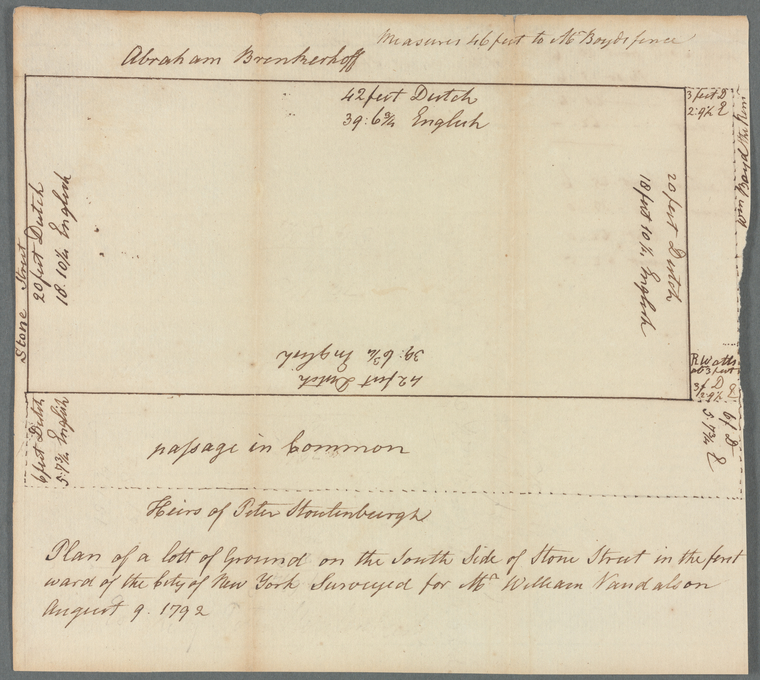 Measures 46 feet to Mr Boyds fence
Abraham Brinkerhoff
42 feet Dutch
39:6¾ English
3 feet D
2:9¾ E
Wm Boyd
Stone Street
20 feet Dutch
18:10¼ English
20 feet Dutch
18 feet 10¼ English
39:6¾ English
42 feet Dutch
R Watts
3 feet
3 f D
2:9¾ E
6 feet Dutch
5:7¾ English
6 f D
5:7¾ E
passage in Common
Heirs of Peter Stoutenburgh
Plan of a lott of Ground on the South Side of Stone Street in the first
ward of the City of New York Surveyed for Mr William Vandalson
August 9. 1792